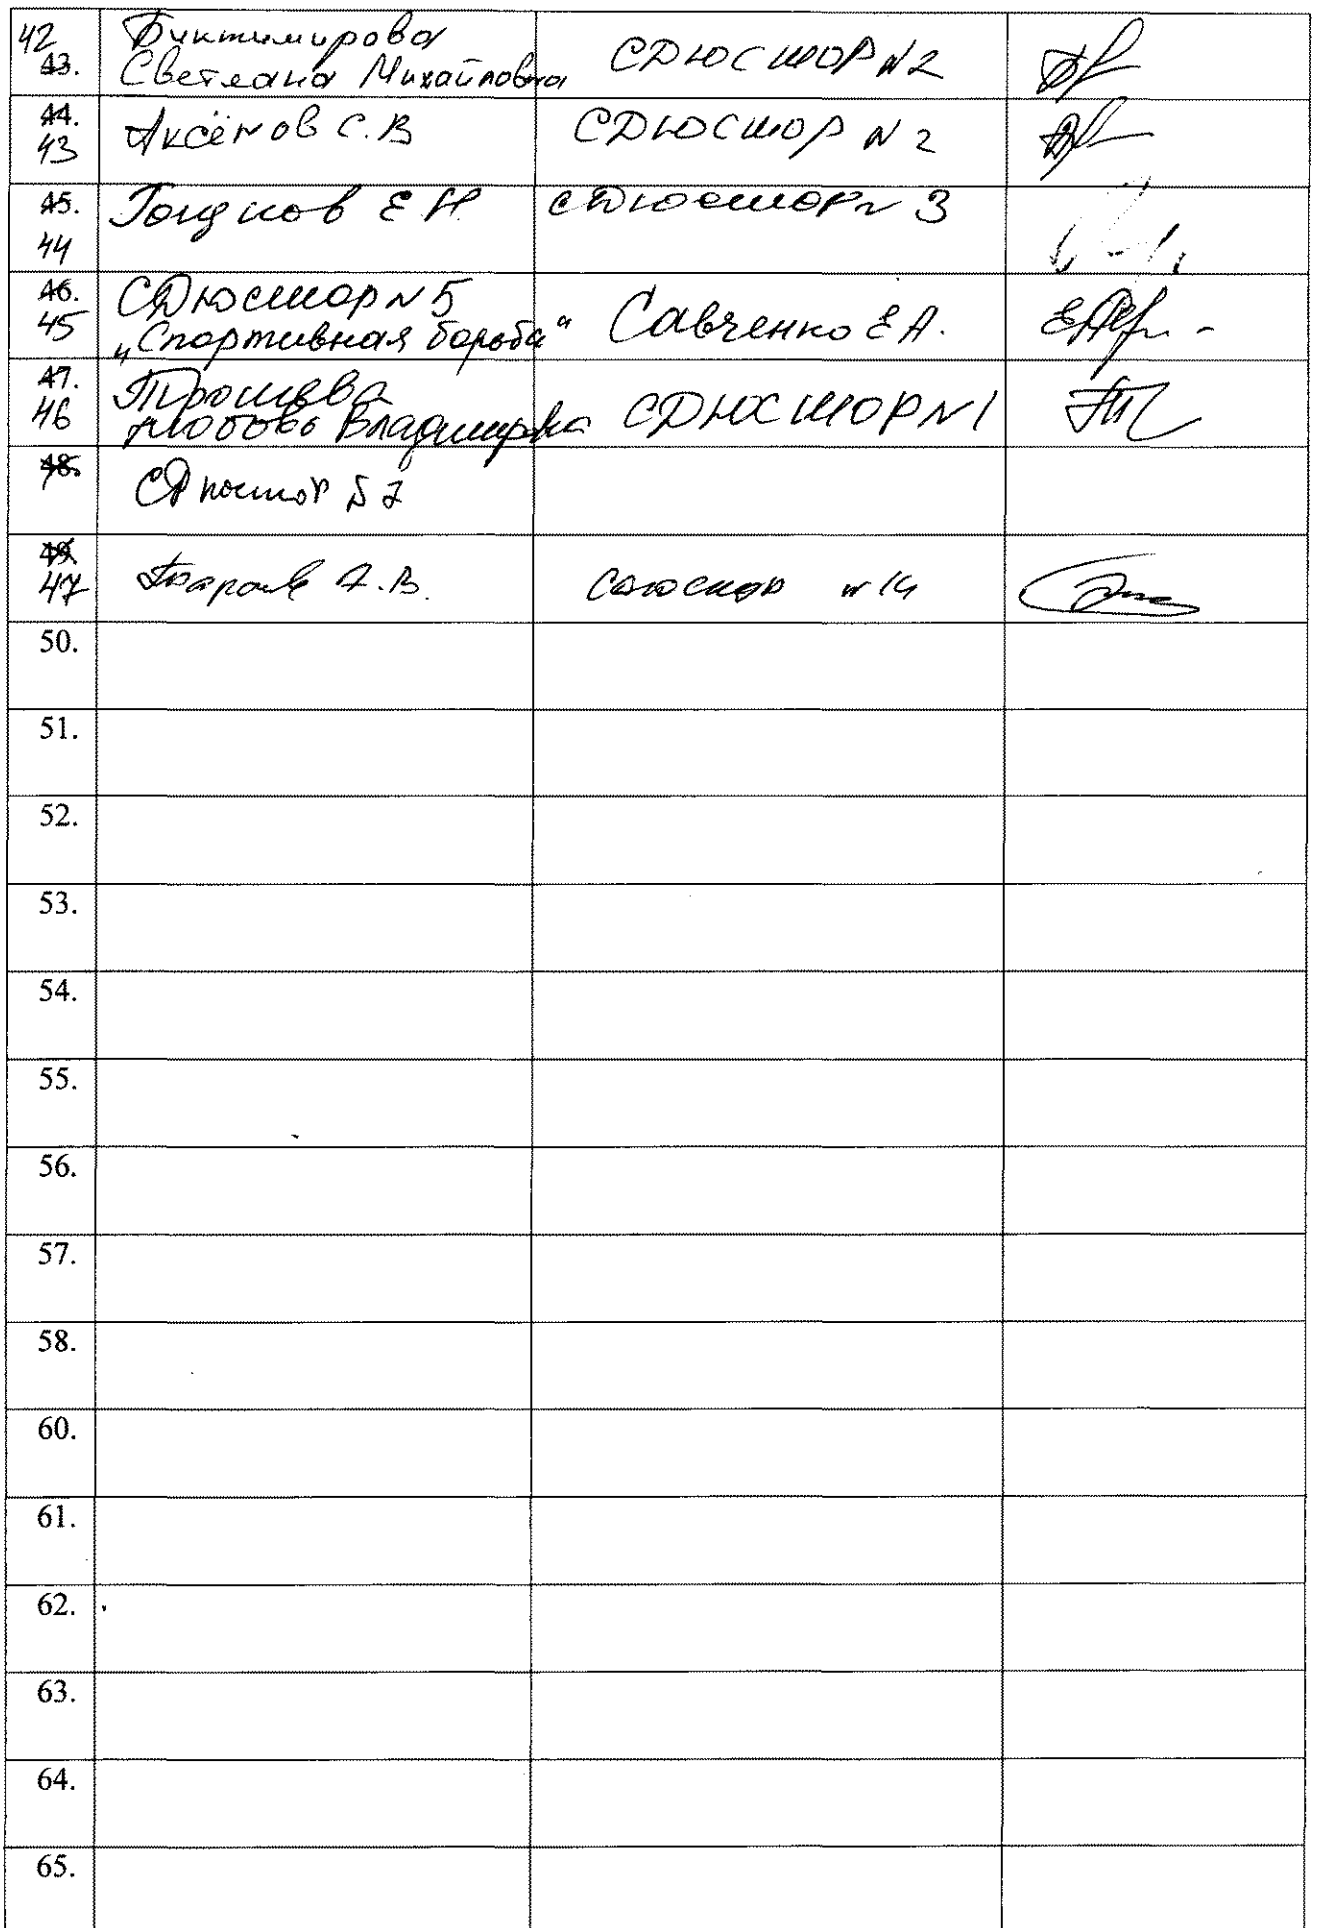 42 Биктимирова
43. Светлана Михайловна СДЮСШОР N2
44. Аксёнов С.В СДЮСШОР N 2
43
45. Е Н СДЮСШОР N 3
44
46. СДЮСШОР N 5
45 „Спортивная борьба“ Савченко Е А.
47. Трошева
46 Любовь Владимировна СДЮСШОР N1
48.
СДЮСШОР N 7
49.
47 А.В. СДЮСШОР N 14
50.
51.
52.
53.
54.
55.
56.
57.
58.
60.
61.
62.
63.
64.
65.